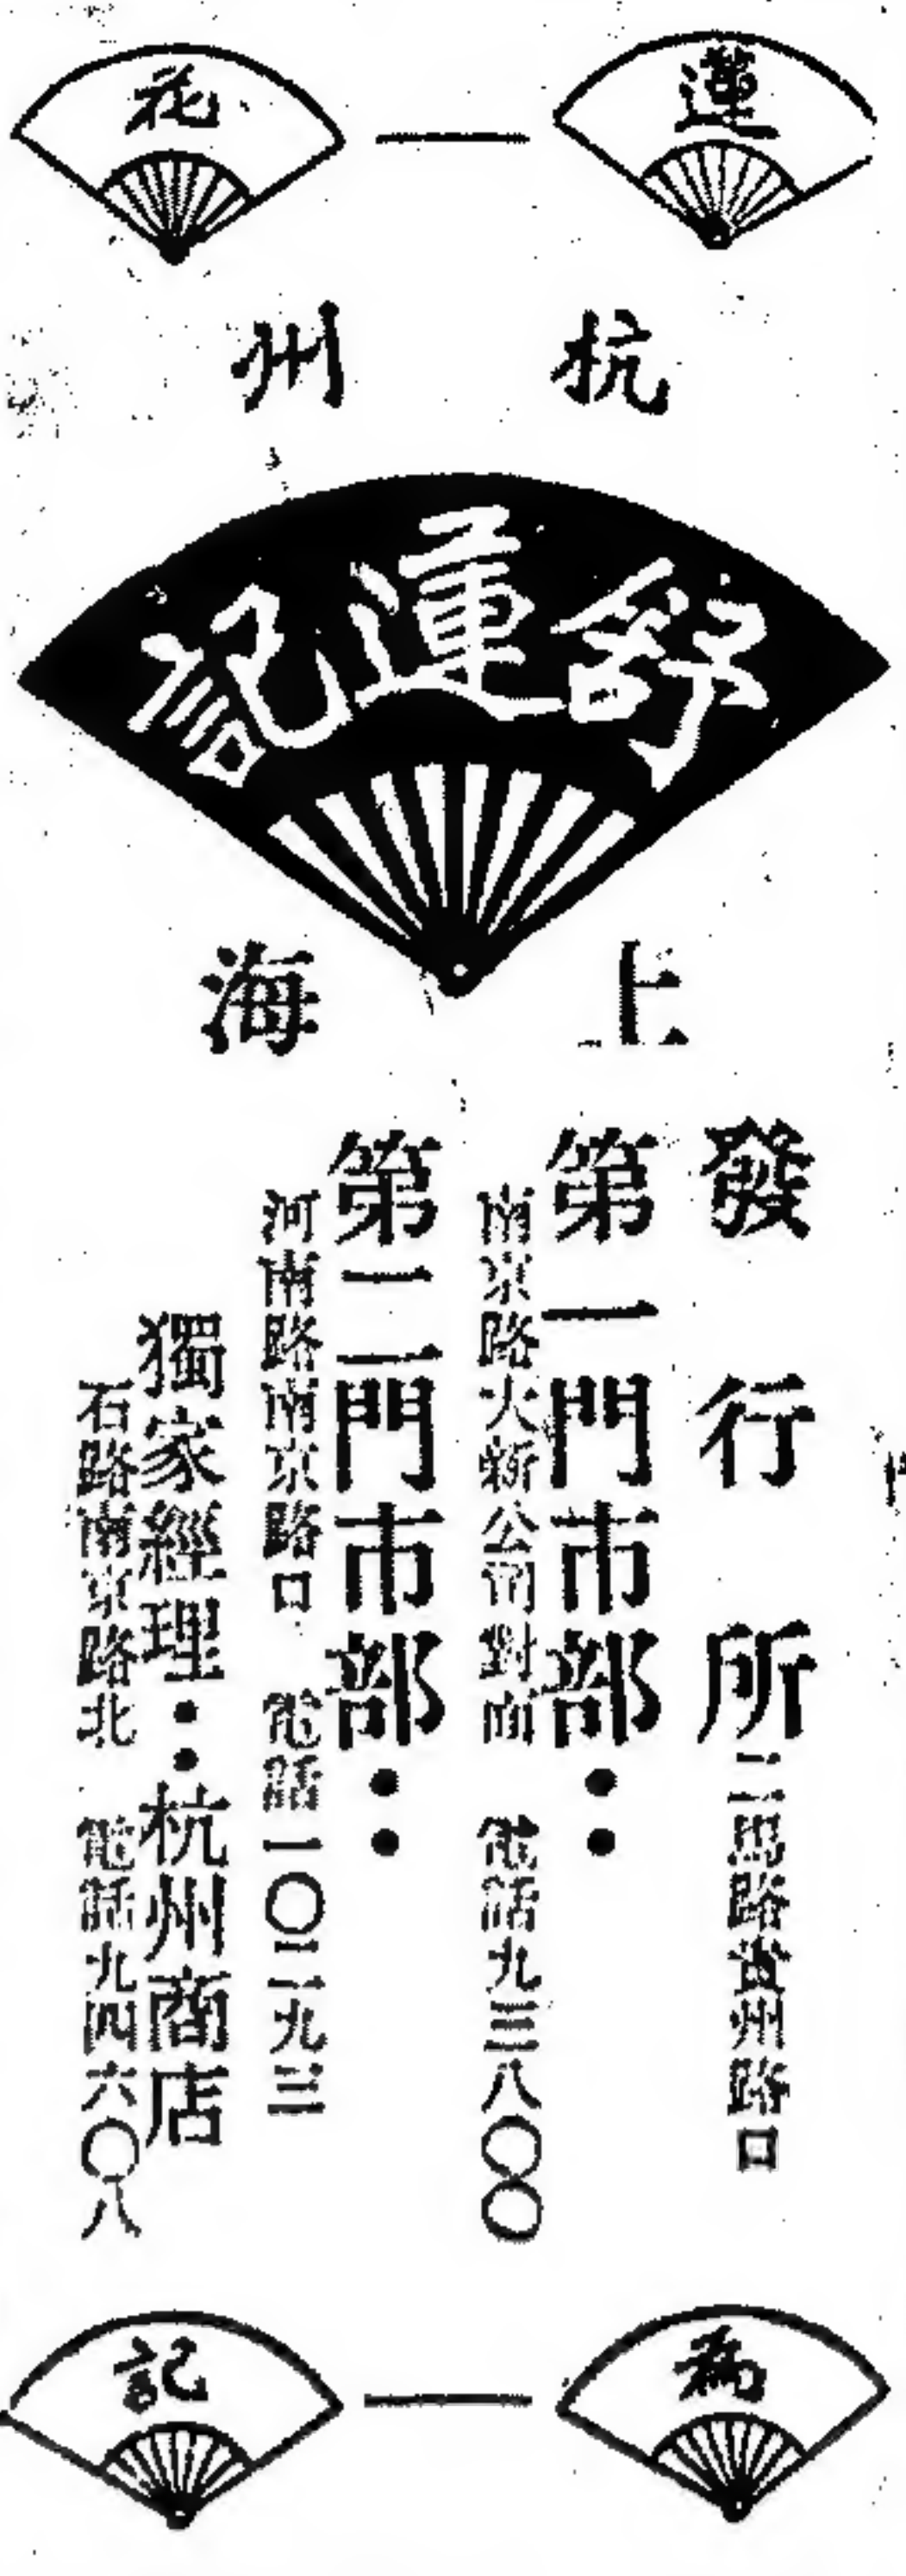 蓮—花
杭州
舒蓮記
上海
發行所二馬路貴州路口
第一門市部：
南京路大新公司對面 電話九三八〇〇
第二門市部：
河南路南京路口 電話一〇二九三
獨家經理：杭州商店
石路南京路北 電話九四六〇八
為—記